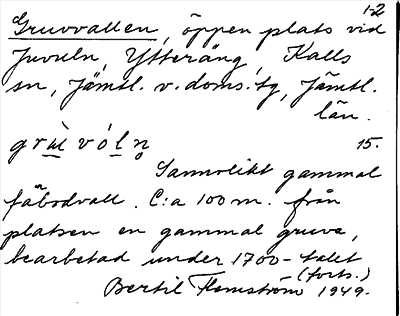 1-2
Gruvvallen, öppen plats vid
Juvuln, Ytteräng, Kalls
sn, Jämtl. v. doms:tg, Jämtl.
län.
grù vóln̥ 15.
Sannolikt gammal
fäbodvall. C:a 100 m. från
platsen en gammal gruva,
bearbetad under 1700-talet
(forts.)
Bertil Flemström 1949.